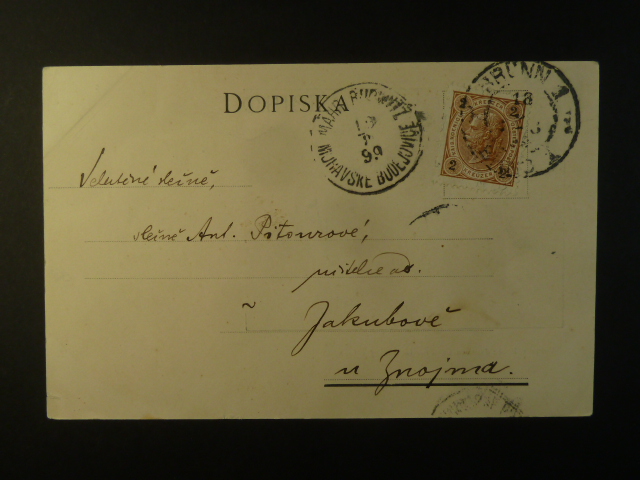 DOPISKA
MÄHR. BUDWITZ
MORAVSKÉ BUDĚJOVICE
99
BRÜNN 1
18
2 2
2 2
Velectěné slečně,
slečně Ant. Pitourové,
učitelce
v Jakubově
u Znojma.